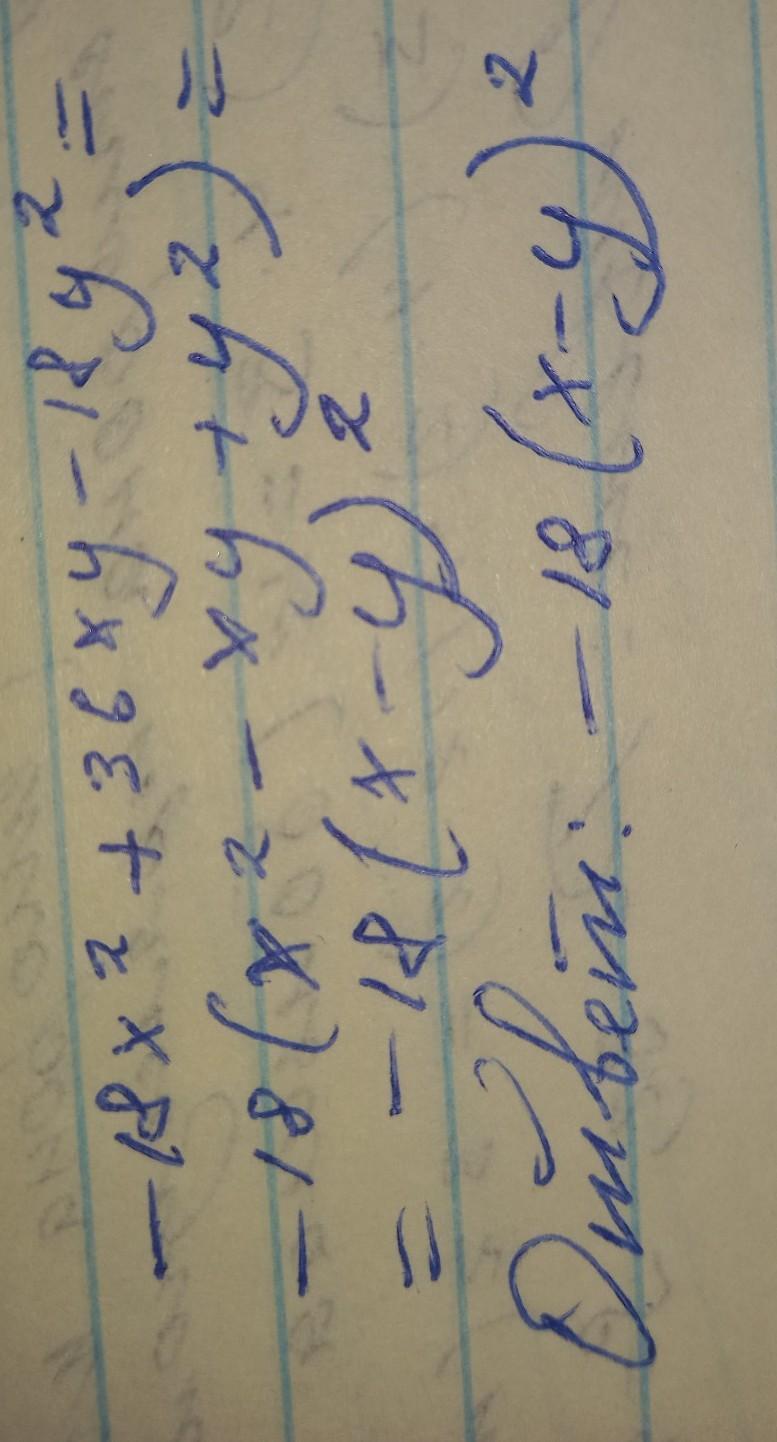 -18x² + 36xy - 18y² =
-18(x² - xy + y²) =
= -18(x - y)²
Ответ: -18(x - y)²